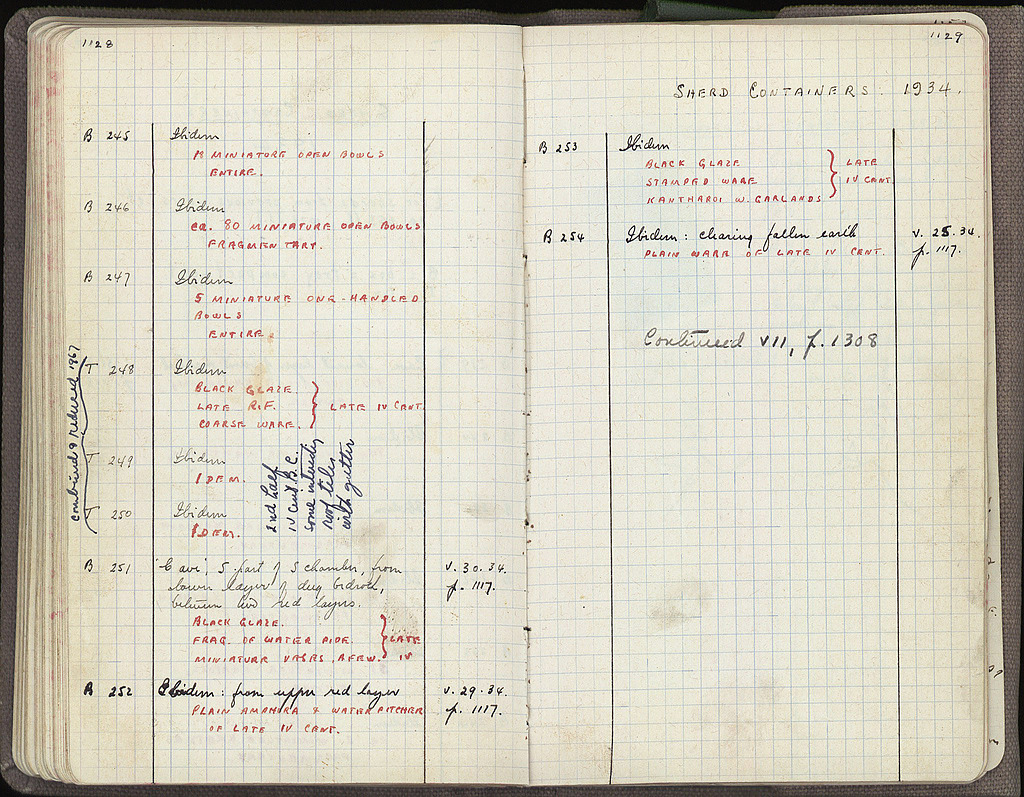 1128
B 245 Ibidem
18 MINIATURE OPEN BOWLS
ENTIRE.
B 246 Ibidem
ca. 80 MINIATURE OPEN BOWLS
FRAGMENTARY.
B 247 Ibidem
5 MINIATURE ONE-HANDLED
BOWLS
ENTIRE.
combined & reduced 1967
T 248 Ibidem
BLACK GLAZE.
LATE R.F. } LATE IV CENT.
COARSE WARE.
T 249 Ibidem
IDEM.
T 250 Ibidem
IDEM.
2nd half
IV cent B.C.
some interesting
roof tiles
with gutter
B 251 S part of S chamber, from v. 30. 34.
down layer of deep bedrock, p. 1117.
between two red layers.
BLACK GLAZE.
FRAG. OF WATER PIPE. } LATE
MINIATURE VASES, A FEW. IV
B 252 Ibidem: from upper red layer v. 29. 34.
PLAIN AMPHORA & WATER PITCHER p. 1117.
OF LATE IV CENT.
1129
SHERD CONTAINERS. 1934.
B 253 Ibidem
BLACK GLAZE } LATE
STAMPED WARE IV CENT.
KANTHAROI W. GARLANDS
B 254 Ibidem: clearing fallen earth v. 25. 34.
PLAIN WARE OF LATE IV CENT. p. 1117.
Continued VII, p. 1308